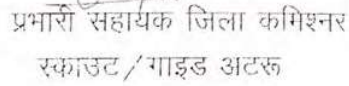 प्रभारी सहायक जिला कमिश्नर
स्काउट/गाइड अटरू